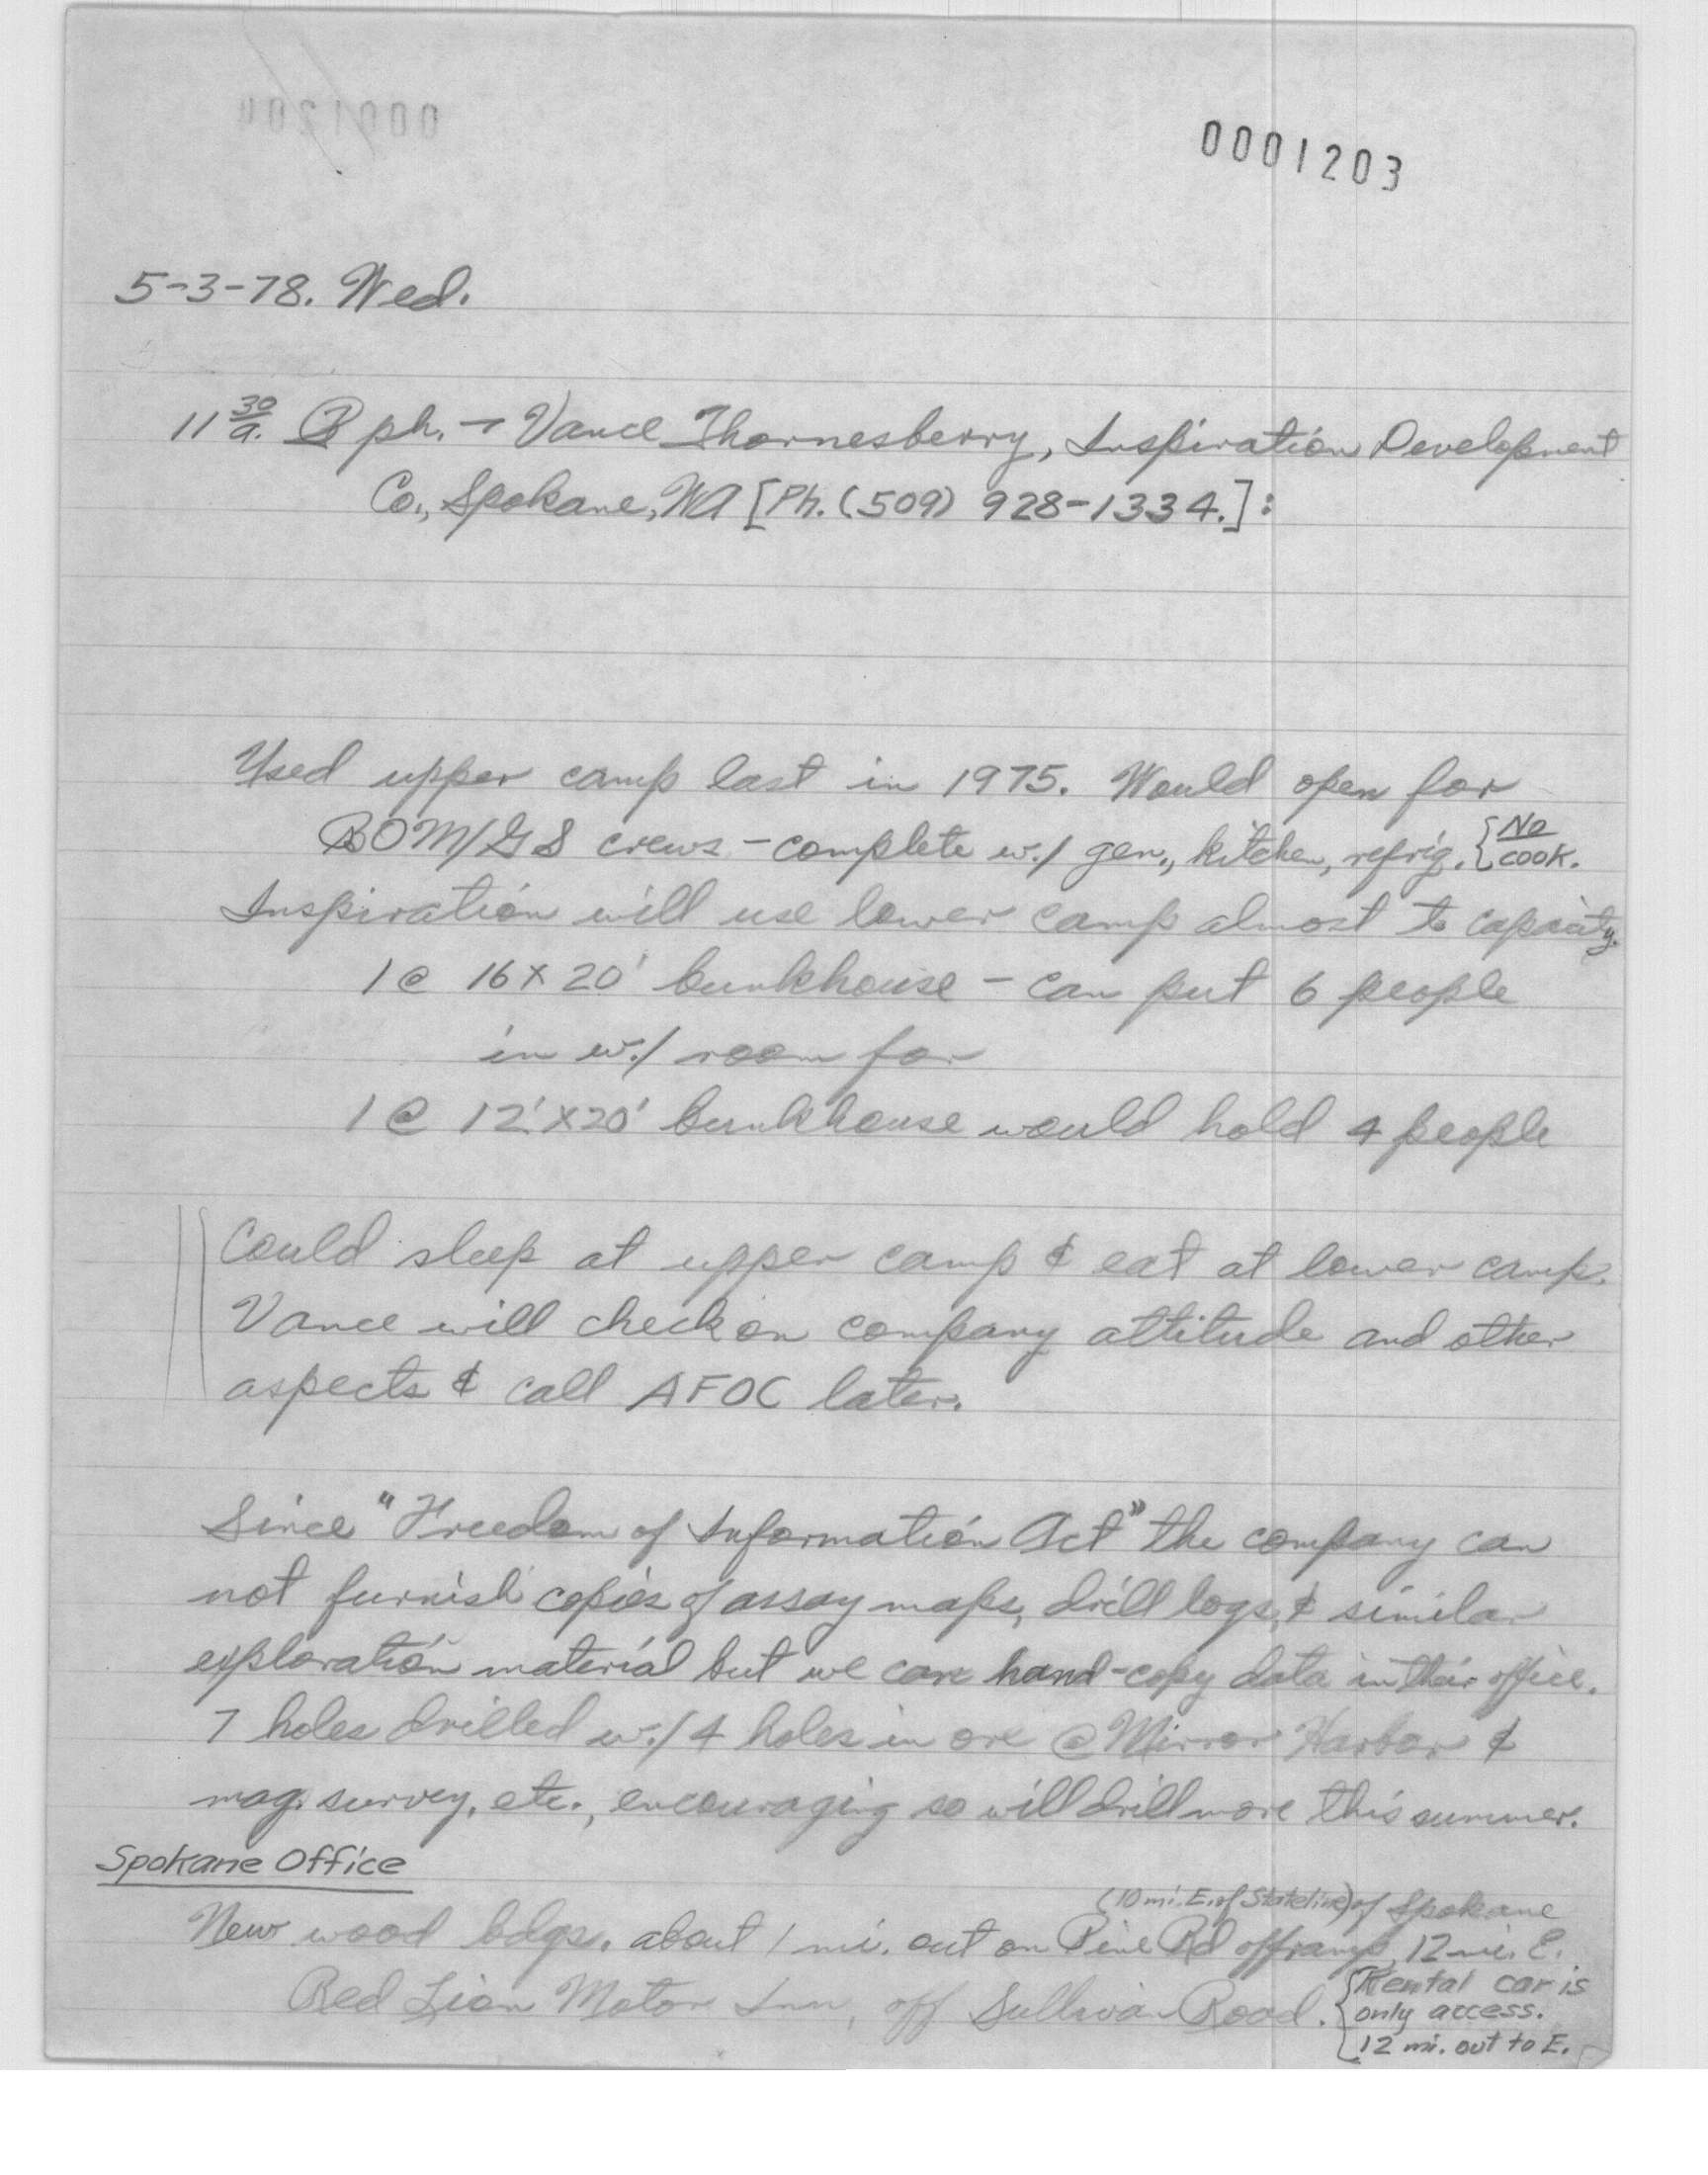 0001203
5-3-78. Wed.
11 30/a. ph. → Vance Thornesberry, Inspiration Development
Co., Spokane, WA [Ph. (509) 928-1334.]:
Used upper camp last in 1975. Would open for
BOM/GS crews - complete w./ gen., kitchen, refrig. {No cook.
Inspiration will use lower camp almost to capacity.
1 @ 16 x 20' bunkhouse - can put 6 people
in w./ room for
1 @ 12' x 20' bunkhouse would hold 4 people
Could sleep at upper camp & eat at lower camp.
Vance will check on company attitude and other
aspects & call AFOC later.
Since "Freedom of Information Act" the company can
not furnish copies of assay maps, drill logs, & similar
exploration material but we can hand-copy data in their office.
7 holes drilled w./ 4 holes in ore @ Mirror Harbor &
mag. survey, etc., encouraging so will drill more this summer.
Spokane Office
(10 mi. E. of Stateline) of Spokane
New wood bdgs. about 1 mi. out on Pine Rd offramp, 12 mi. E.
Red Lion Motor Inn, off Sullivan Road. {Rental car is
only access.
12 mi. out to E.